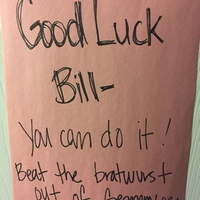 Good Luck
Bill-
You can do it!
Beat the bratwurst
out of Germany